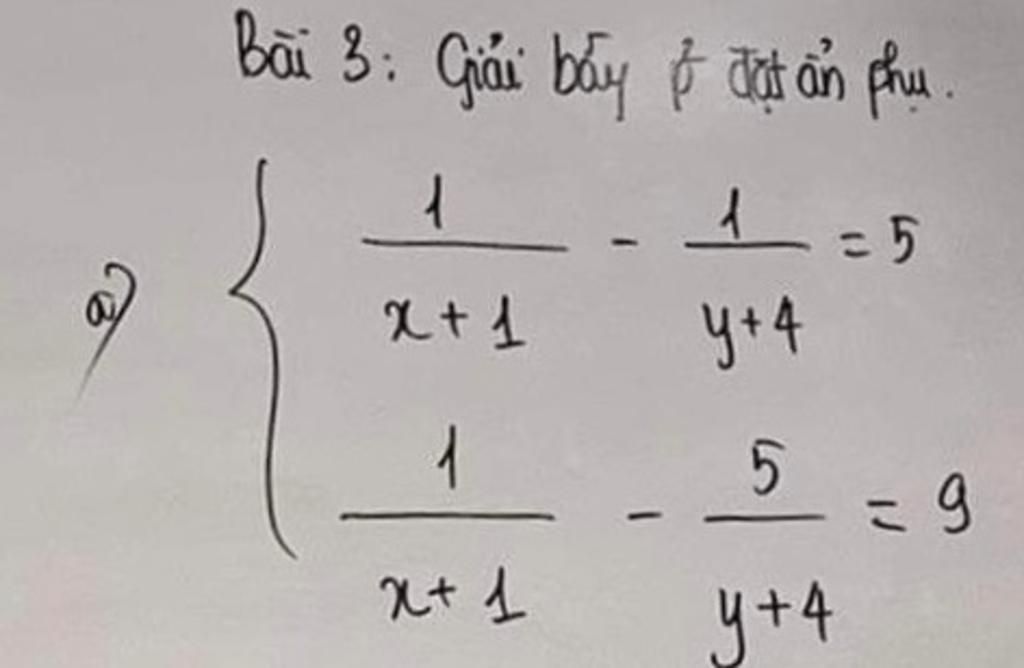 Bài 3: Giải bấy p² đặt ẩn phụ.
a) { 1/(x+1) - 1/(y+4) = 5
1/(x+1) - 5/(y+4) = 9